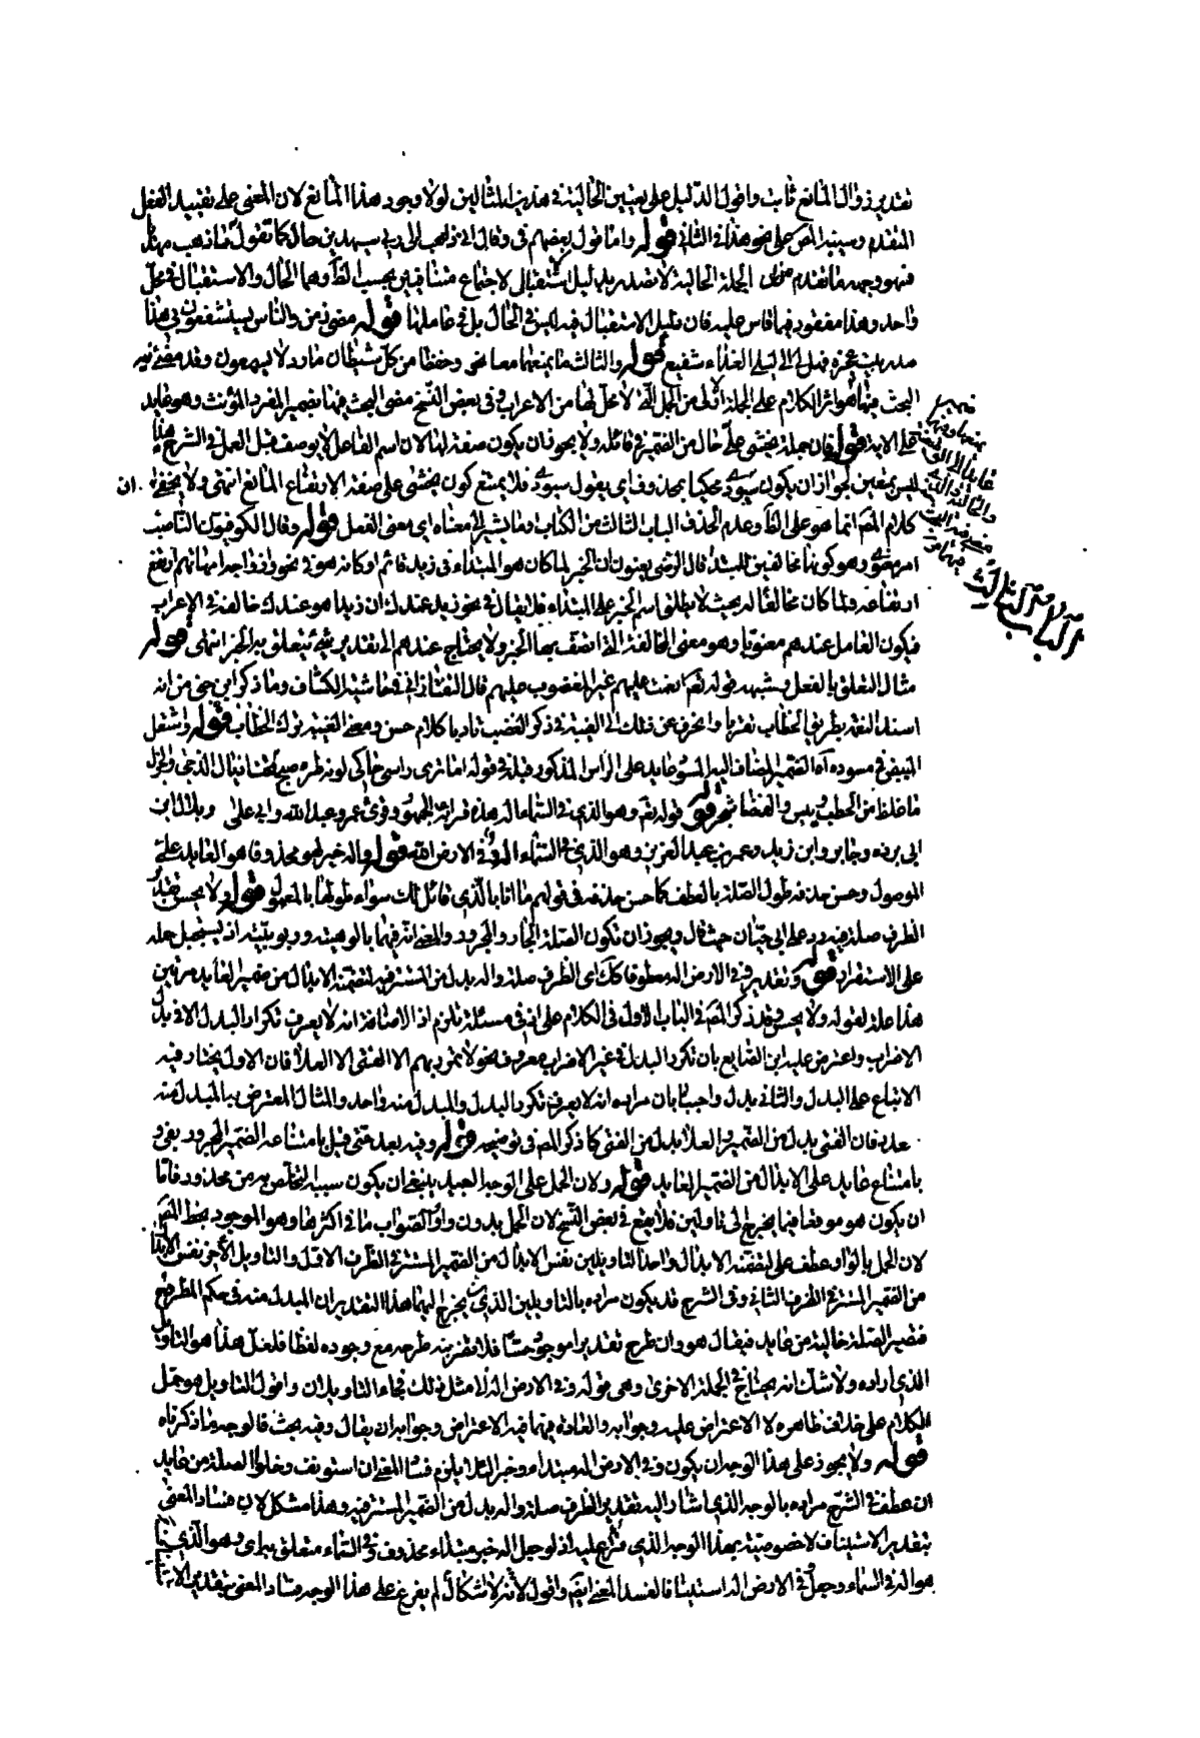 تقدير زوال المانع ثابت واقول الدليل على تعيين الحالية في هذين المثالين لولا وجود هذا المانع لان المعنى على تقييد الفعل
المتقدم وسينبه المص على نحو هذا في الثاني قوله واما قول بعضهم في وقال اني ذاهب الى ربي سيهدين حال كما تقول سأذهب مهتديا
فسهو وجهه ما تقدم من ان الجملة الحالية لا تصدر بدليل استقبال لاجتماع متنافيين بحسب الظ وهما الحال والاستقبال في محل
واحد وهذا مفقود فيما قاس عليه فان دليل الاستقبال فيه ليس في الحال بل في عاملها قوله مضى زمن والناس يستشفعون بي هذا
صدر بيت عجزه فهل لي الى ليلى الغداة شفيع قوله والثالث ما يمنعهما معا نحو وحفظا من كل شيطان مارد لا يسمعون وقد مضى فيه
البحث فيها هو اثر الكلام على الجملة الاولى من الجمل التي لا محل لها من الاعراب وفي بعض النسخ مضى البحث فيها بضمير المفرد المؤنث وهو عايد
على الاية قوله فان جملة يخشى حال من الضمير في قائله ولا يجوز ان يكون صفة لها لان اسم الفاعل لا يوصف قبل العمل في الشرح هذا
ليس بمتعين لجواز ان يكون محكيا بمحذوف اي يقول فلا يمتنع كون يخشى على صفة الارتفاع المانع انتهى ولا يخفى ان
كلام المص انما هو على الظ وعدم الحذف الباب الثالث من الكتاب وما يشير الى معناه اي معنى الفعل قوله وقال الكوفيون الناصب
امر معنوي وهو كونهما مخالفين للمبتدا قال الرضي يعنون ان الخبر لما كان هو المبتداء في زيد قائم او كانه هو في نحو وازواجه امهاتهم ارتفع
ارتفاعه ولما كان مخالفا له بحيث لا يطلق اسم الخبر على المبتداء فلا يقال في نحو زيد عندك ان زيدا هو عندك خالفه في الاعراب
فيكون العامل عندهم معنويا وهو معنى المخالفة التي اتصف بها الخبر ولا يحتاج عندهم الى تقدير شيء يتعلق به الخبر انتهى قوله
مثال التعلق بالفعل وشبهه قوله تعم انعمت عليهم غير المغضوب عليهم قال التفتازاني في حاشية الكشاف وما ذكر ابن جني من انه
اسند النعمة بطريق الخطاب تقربا وانحرف عن ذلك الى الغيبة في ذكر الغضب تادبا كلام حسن ومعنى الغيبة ترك الخطاب قوله واشتعل
المبيض في مسوده الضمير المضاف اليه المسود عايد على الراس المذكور قبله في قوله اما ترى راسي حاكى لونه طرة صبح تحت اذيال الدجى والجزل
ما غلظ من الحطب ويبس والغضا شجر قوله قوله تعم وهو الذي في السماء اله هذه قراءة الجمهور وقرئ عمر وعبد الله وابي وعلي وبلال ابن
ابي بردة وجابر وابن زيد وعمر بن عبد العزيز وهو الذي في السماء الله وفي الارض الله قوله واله خبر لهو محذوفا هو العايد على
الموصول وحسن حذفه طول الصلة بالعطف كما حسن حذفه في قولهم ما انا بالذي قائل لك سواء طولها بالمعمول قوله ولا يحسن تقدير
الظرف صلة فيه رد على ابي حيان حيث قال ويجوز ان تكون الصلة الجار والمجرور والمعنى انه فيهما بالوهيته وربوبيته اذ يستحيل حمله
على الاستقرار قوله وتقدير وفي الارض اله معطوفا كك اى الظرف صلة واله بدل من المستتر فيه لتضمنه الابدال من ضمير العايد مرتين
هذا علة لقوله ولا يحسن وقد ذكر المص في الباب الاول في الكلام على اذ في مسئلة تلزم اذ الاضافة انه لا يعرف تكرار البدل الا في بدل
الاضراب واعترض عليه ابن الصايغ بان تكرر البدل في غير الاضراب معروف نحو لا تمرر بهم الا الفتى الا العلا فان الاول يختار فيه
الاتباع على البدل والثاني بدل واجيب بان مراده انه لا يعرف تكرر البدل والمبدل منه واحد والمثال المعترض به المبدل منه
عدة فان الفتى بدل من الضمير والعلا بدل من الفتى كما ذكر المص في توضيحه قوله وفيه بعد حتى قيل بامتناعه الضمير المجرور بفي و
بامتناع عايد على الابدال من الضمير العايد قوله ولان الحمل على الوجه البعيد ينبغي ان يكون سببه التخلص به من محذور فاما
ان يكون هو موقعا فيما يخرج الى تاولين فلا يقع في بعض النسخ لان الحمل بدون واو والصواب ما في اكثرها وهو الموجود بخط المص
لان الحمل بالواو عطف على لتضمنه الابدال واحد التاويلين نفس الابدال من الضمير المستتر في الظرف الاول والتاويل الآخر نفس الابدال
من الضمير المستتر في الظرف الثاني وفي الشرح قد يكون مراده بالتاويلين الذين يخرج اليهما هذا التقدير ان المبدل منه في حكم المطروح
فتصير الصلة خالية من عايد فيقال هو وان طرح تقديرا موجود حسا فلا تضر نية طرحه مع وجوده لفظا فلعل هذا هو التاويل
الذي اراده ولا شك انه يحتاج في الجملة الاخرى وهى قوله وفي الارض اله الى مثل ذلك فجاء التاويلان واقول التاويل هو حمل
الكلام على خلاف ظاهره لا الاعتراض عليه وجوابه والفائدة فيهما فيه الاعتراض وجوابه ان يقال وفيه بحث فالوجه ما ذكرناه
قوله ولا يجوز على هذا الوجه ان يكون وفي الارض اله مبتداء وخبرا لئلا يلزم فساد المعنى ان استونف وخلو الصلة من عايد
ان عطف في الشرح مراده بالوجه الذي اشار اليه تقدير الظرف صلة واله بدل من الضمير المستتر فيه وهذا مشكل لان فساد المعنى
بتقدير الاستيناف لا خصوصية بهذا الوجه الذي فرع عليه اذ لو جعل اله خبر مبتداء محذوف وفي السماء متعلق به اي وهو الذي
هو اله في السماء وجعل في الارض اله استينافا لفسد المعنى ايضا واقول لا اشكال لم يفرغ على هذا الوجه فساد المعنى بتقدير الاستيناف
الكلام في الباب الثالث